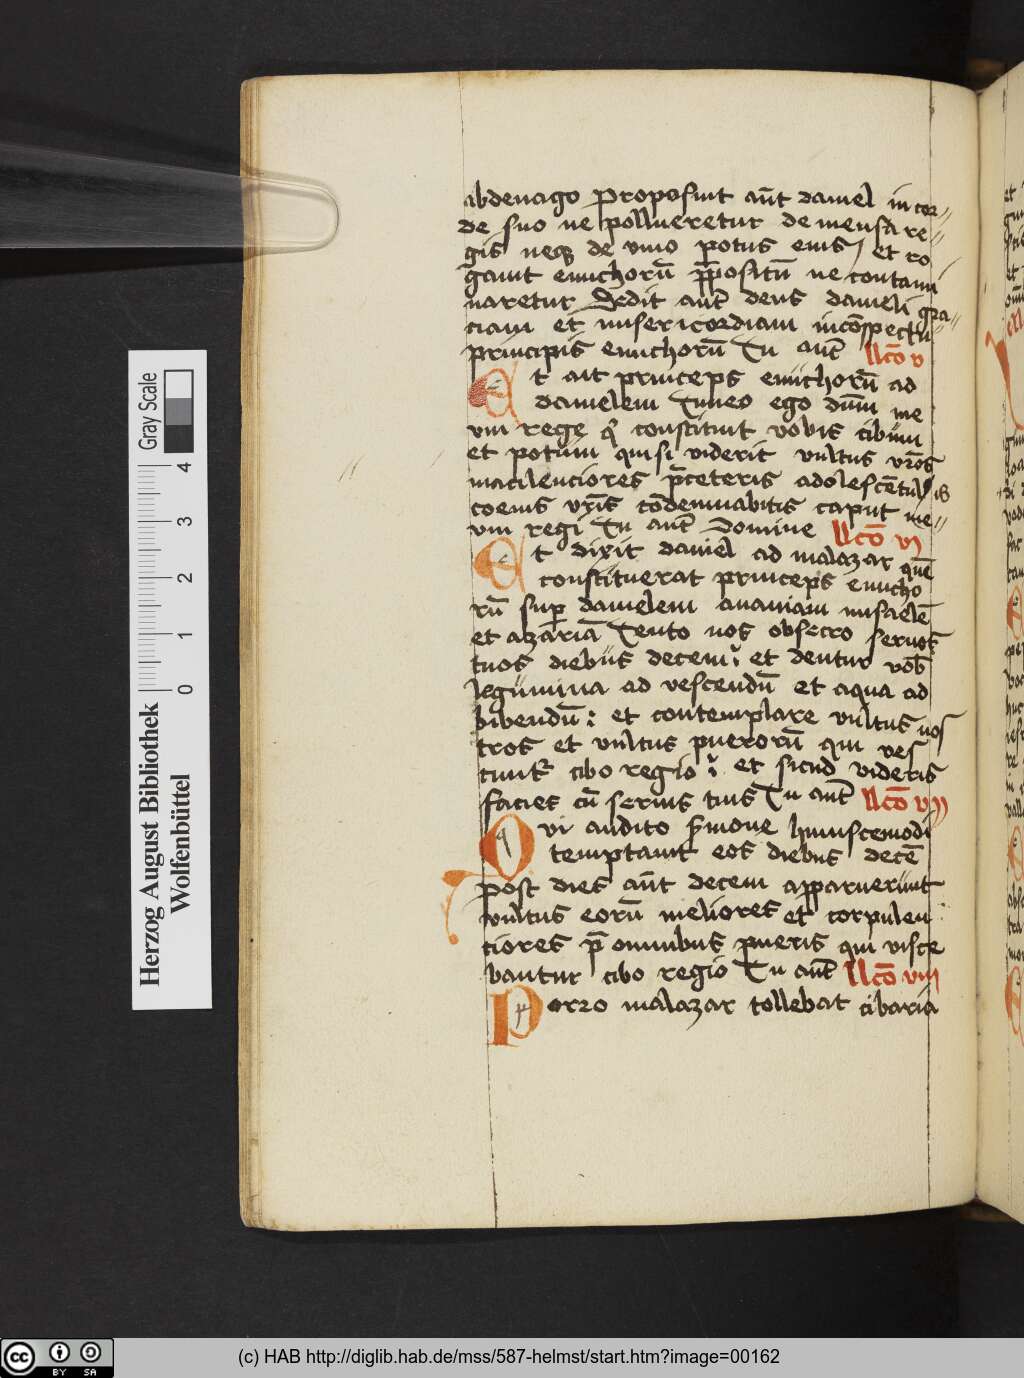 abdenago Proposuit aūt daniel in cor⸗
de suo ne pollueretur de mensa re⸗
gis neqꝫ de vino potus eius / et ro
gauit eunchorū p̄positū ne contami
naretur Dedit aūt deus danieli gra⸗
ciam et misericordiam incōspectu
principis eunchorū Tu aūt llcō v
Et ait princeps eunchorū ad
danielem Timeo ego dn̄m me
um regē qͥ constituit vobis cibum
et potum qui si viderit vultus vr̄os
macilenciores p̄ceteris adolescētulis
coeuis vr̄is cōdemnabitis caput me⸗
um regi Tu aūt domine llcō vi
Et dixit daniel ad malazar quē
constituerat princeps euncho
rū suꝑ danielem ananiam misaelē
et azariā Tento nos obsecro seruos
tuos diebus decem et dentur vob̄
legumina ad vescendū et aqua ad
bibendū : et contemplare vultus nos
tros et vultus puerorū qui ves
cuntᷣ cibo regio : et sicud videris
facies cū seruis tuis Tu aūt llcō vii
Qui audito s̄mone huiuscemodi
temptauit eos diebus decē
post dies aūt decem apparuerunt
vultus eorū meliores et corpulen
ciores p̄ omnibus pueris qui visce
bantur cibo regio Tu aūt llcō viii
Porro malazar tollebat cibaria
Herzog August Bibliothek
Wolfenbüttel
Gray Scale
0 1 2 3 4
(c) HAB http://diglib.hab.de/mss/587-helmst/start.htm?image=00162
cc BY SA